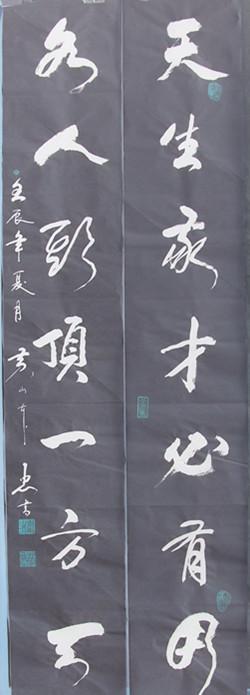 天生我才必有用
各人頭頂一方天
壬辰年夏月